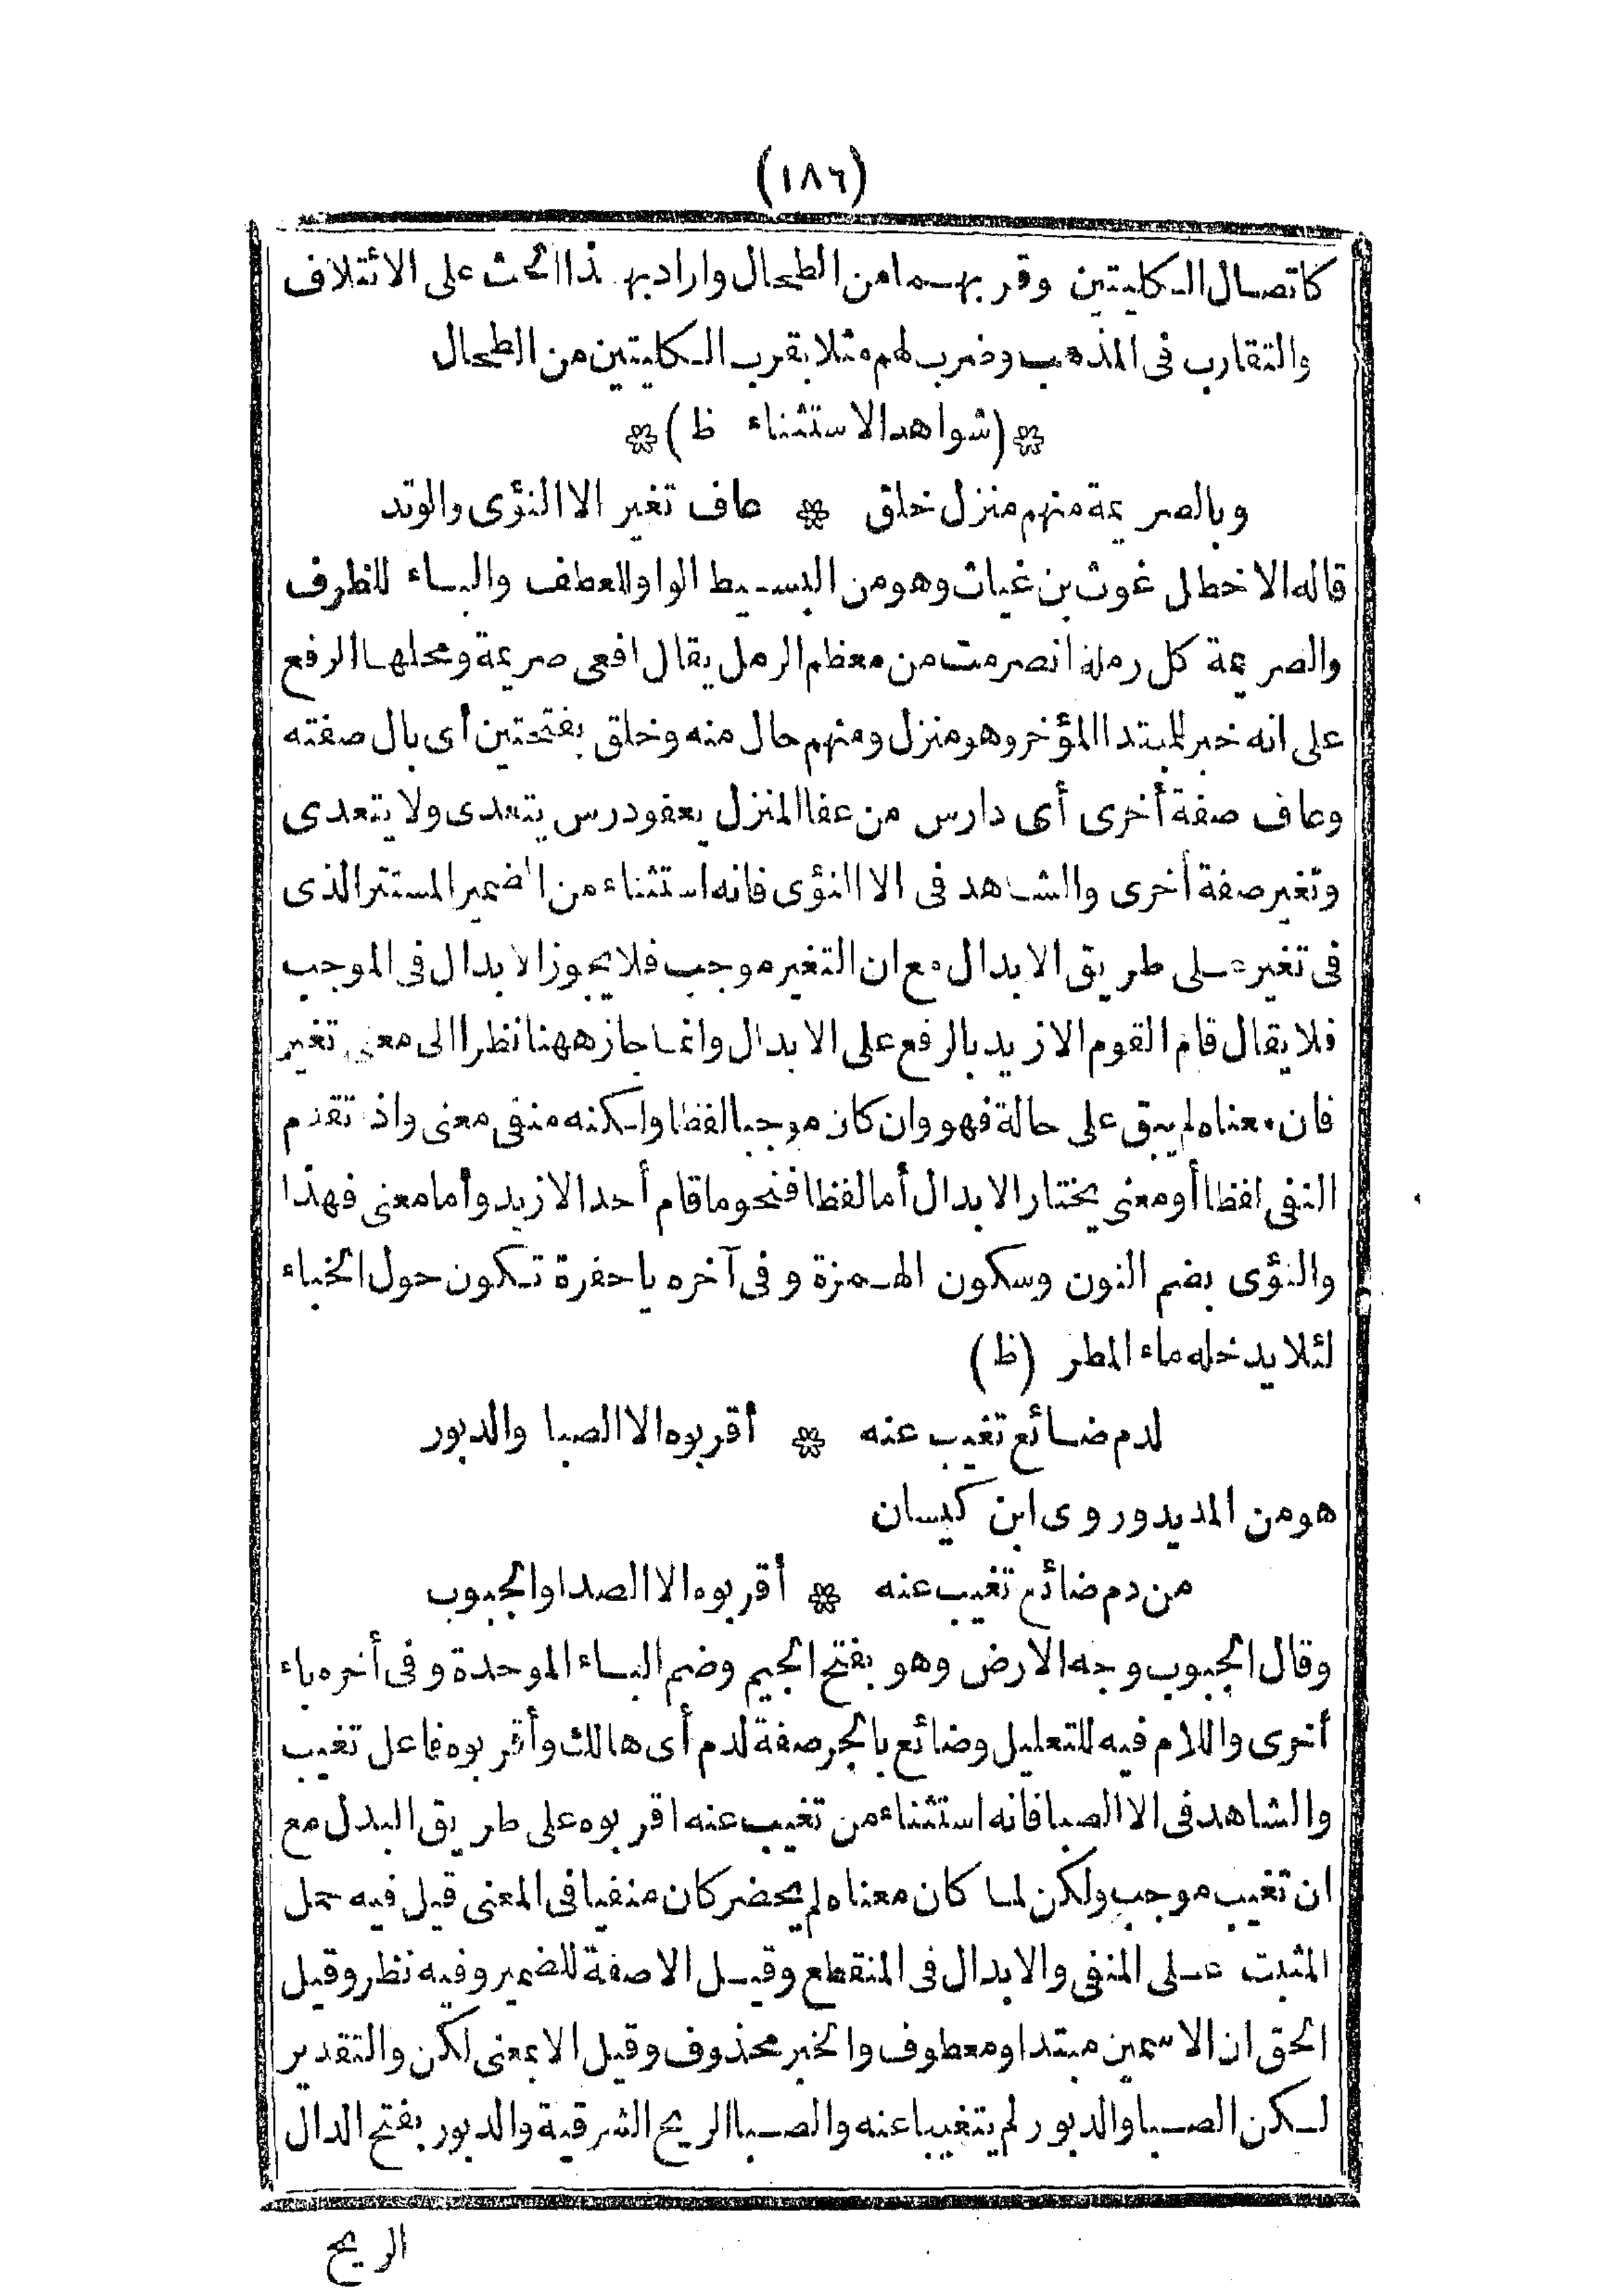 (١٨٦)
كاتصال الكليتين وقربهما من الطحال واراد بهذا الحث على الائتلاف
والتقارب فى المذهب وضرب لهم مثلا بقرب الكليتين من الطحال
* (شواهد الاستثناء ظ) *
وبالصريمة منهم منزل خلق * عاف تغير الا النؤى والوتد
قاله الاخطل غوث بن غياث وهو من البسيط الواو للعطف والباء للظرف
والصريمة كل رملة انصرمت من معظم الرمل يقال افعى صريمة ومحلها الرفع
على انه خبر للمبتدا المؤخر وهو منزل ومنهم حال منه وخلق بفتحتين أى بال صفته
وعاف صفة أخرى أى دارس من عفا المنزل يعفو درس يتعدى ولا يتعدى
وتغير صفة أخرى والشاهد فى الا النؤى فانه استثناء من الضمير المستتر الذى
فى تغير على طريق الابدال مع ان التغير موجب فلا يجوز الابدال فى الموجب
فلا يقال قام القوم الا زيد بالرفع على الابدال وانما جاز ههنا نظرا الى معنى تغير
فان معناه لم يبق على حالة فهو وان كان موجبا لفظا ولكنه منفى معنى واذ تقدم
النفى لفظا أو معنى يختار الابدال أما لفظا فنحو ما قام أحد الا زيد وأما معنى فهذا
والنؤى بضم النون وسكون الهمزة وفى آخره يا حفرة تكون حول الخباء
لئلا يدخله ماء المطر (ظ)
لدم ضائع تغيب عنه * أقربوه الا الصبا والدبور
هو من المديد وروى ابن كيسان
من دم ضائع تغيب عنه * أقربوه الا الصدا والجبوب
وقال الجبوب وجه الارض وهو بفتح الجيم وضم الباء الموحدة وفى أخره باء
أخرى واللام فيه للتعليل وضائع بالجر صفة لدم أى هالك وأقربوه فاعل تغيب
والشاهد فى الا الصبا فانه استثناء من تغيب عنه اقربوه على طريق البدل مع
ان تغيب موجب ولكن لما كان معناه لم يحضر كان منفيا فى المعنى قيل فيه حمل
المثبت على المنفى والابدال فى المنقطع وقيل الا صفة للضمير وفيه نظر وقيل
الحق ان الاسمين مبتدا ومعطوف والخبر محذوف وقيل الا بمعنى لكن والتقدير
لكن الصبا والدبور لم يتغيبا عنه والصبا الريح الشرقية والدبور بفتح الدال
الريح